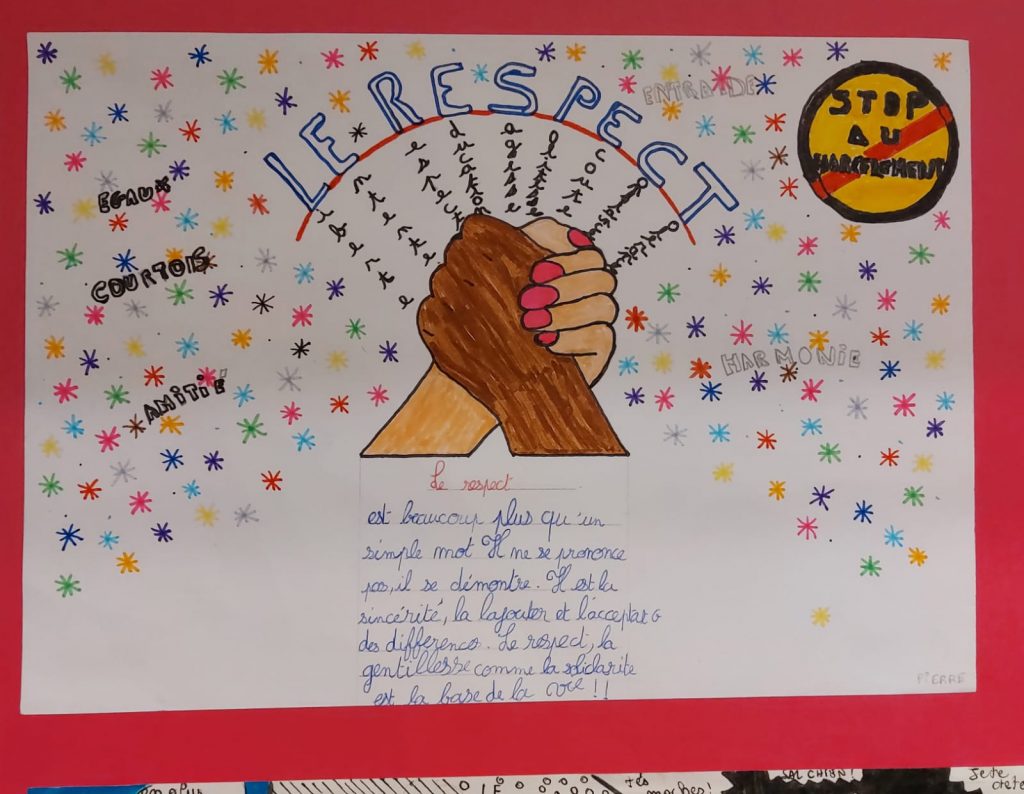 LE RESPECT
ENTRAIDE
STOP
AU
HARCELEMENT
iberte
ntente
espect
ducation
agesse
coute
EGAUX
COURTOIS
AMITIÉ
HARMONIE
Le respect
est beaucoup plus qu'un
simple mot Il ne se prononce
pas, il se démontre. Il est la
sincérité, la lajouter et l'acceptat
des differences. Le respect, la
gentillesse comme la solidarite
est la base de la vie !!
PIERRE
SAL CHIEN!
moches!
Je te